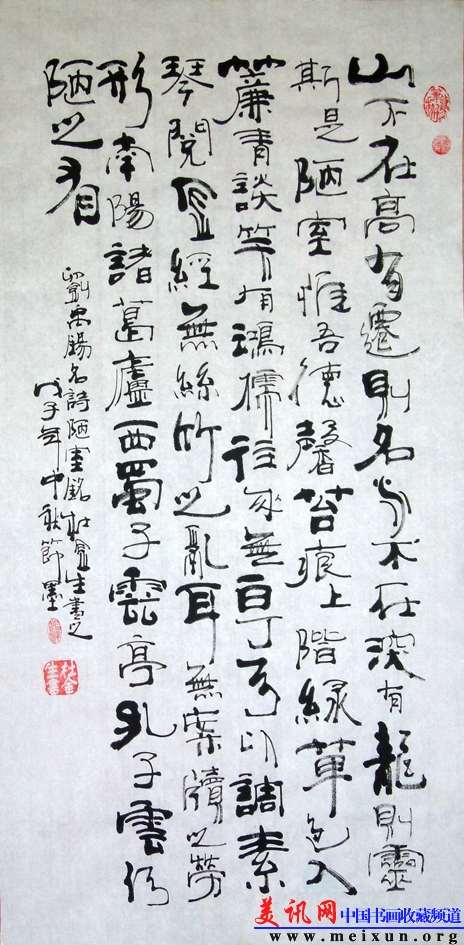 山不在高有僊則名水不在深有龍則靈
斯是陋室惟吾德馨苔痕上階緑草色入
簾青談笑有鴻儒往來無白丁可以調素
琴閱金經無絲竹之亂耳無案牘之勞
形南陽諸葛廬西蜀子雲亭孔子雲何
陋之有
劉禹錫名詩陋室銘杜金生書之
戊子年中秋節墨
美讯网 中国书画收藏频道
www.meixun.org